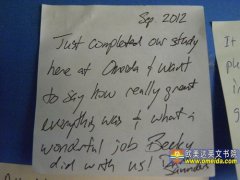 Sep. 2012
Just completed our study
here at Omeida & want
to say how really great
everything was & what a
wonderful job Becky
did with us!
欧美达英文书院
www.omeida.com
It
p
a
g